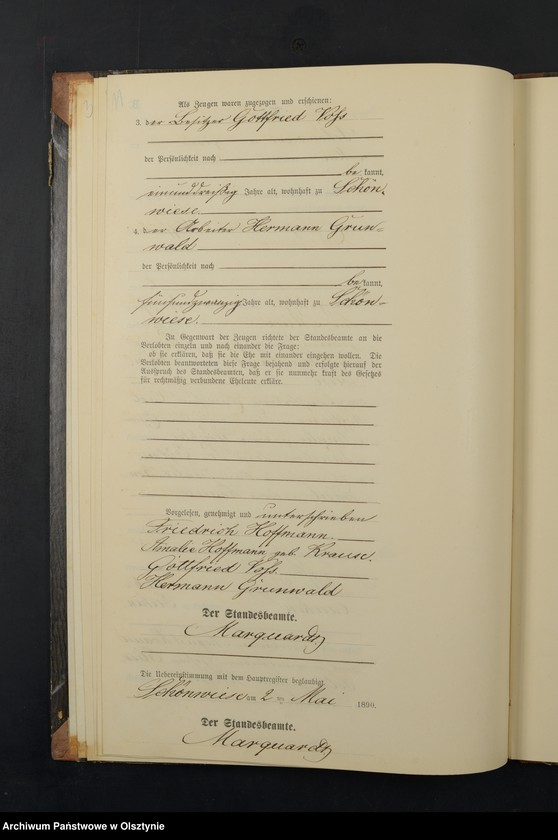 Als Zeugen waren zugezogen und erschienen:
3. der Besitzer Gottfried Voß
der Persönlichkeit nach
be kannt,
einunddreißig Jahre alt, wohnhaft zu Schön-
wiese
4. der Arbeiter Hermann Grun-
wald
der Persönlichkeit nach
be kannt,
fünfundzwanzig Jahre alt, wohnhaft zu Schön-
wiese.
In Gegenwart der Zeugen richtete der Standesbeamte an die
Verlobten einzeln und nach einander die Frage:
ob sie erklären, daß sie die Ehe mit einander eingehen wollen. Die
Verlobten beantworteten diese Frage bejahend und erfolgte hierauf der
Ausspruch des Standesbeamten, daß er sie nunmehr kraft des Gesetzes
für rechtmäßig verbundene Eheleute erkläre.
Vorgelesen, genehmigt und unterschrieben
Friedrich Hoffmann.
Amalie Hoffmann geb. Krause.
Gottfried Voß.
Hermann Grunwald
Der Standesbeamte.
Marquardt
Die Uebereinstimmung mit dem Hauptregister beglaubigt
Schönwiese am 2 ten Mai 1890.
Der Standesbeamte.
Marquardt
Archiwum Państwowe w Olsztynie